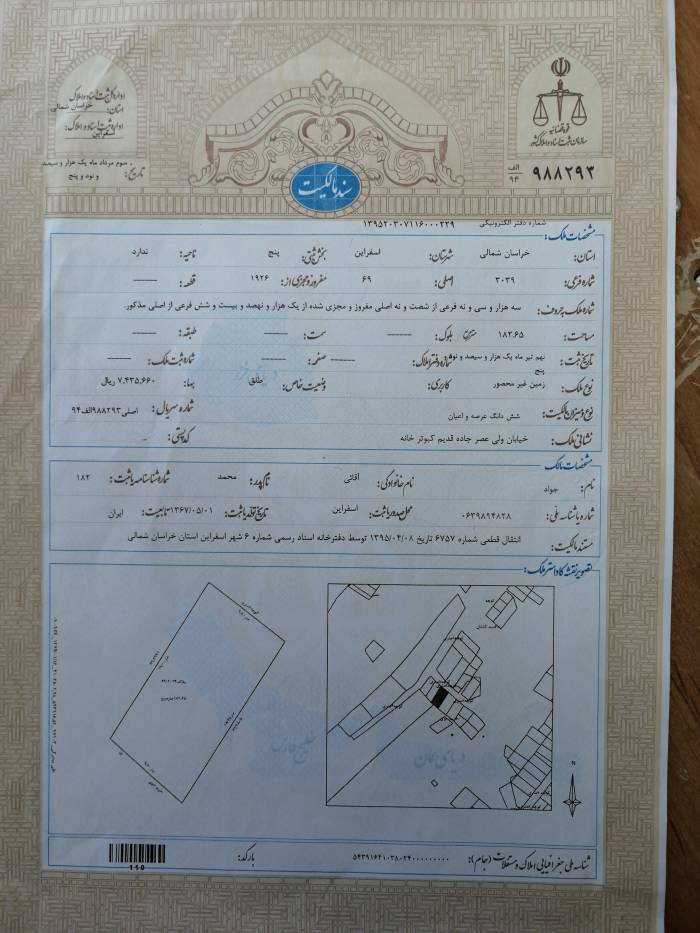 اداره کل ثبت اسناد و املاک
استان: خراسان شمالی
اداره ثبت اسناد و املاک:
اسفراین
تاریخ: سوم مرداد ماه یک هزار و سیصد
و نود و پنج
سند مالکیت
قوه قضائیه
سازمان ثبت اسناد و املاک کشور
الف
۹۴
۹۸۸۲۹۳
شماره دفتر الکترونیکی: ۱۳۹۵۲۰۳۰۷۱۱۶۰۰۰۲۲۹
مشخصات ملک:
استان: خراسان شمالی شهرستان: اسفراین بخش ثبتی: پنج ناحیه: ندارد
شماره فرعی: ۳۰۳۹ اصلی: ۶۹ مفروز و مجزی از: ۱۹۲۶ قطعه: -----
شماره ملک به حروف: سه هزار و سی و نه فرعی از شصت و نه اصلی مفروز و مجزی شده از یک هزار و نهصد و بیست و شش فرعی از اصلی مذکور.
مساحت: ۱۸۲.۶۵ مترمربع بلوک: ----- سمت: ----- طبقه: -----
تاریخ ثبت: نهم تیر ماه یک هزار و سیصد و نود و پنج شماره دفتر املاک: ----- صفحه: ----- شماره ثبت ملک: -----
نوع ملک: زمین غیر محصور کاربری: وضعیت خاص: طلق بها: ۷،۴۳۵،۶۶۰ ریال
نوع و میزان مالکیت: شش دانگ عرصه و اعیان شماره سریال: اصلی۹۸۸۲۹۳الف۹۴
نشانی ملک: خیابان ولی عصر جاده قدیم کبوتر خانه کد پستی: -
مشخصات مالک
نام: جواد نام خانوادگی: آقائی نام پدر: محمد شماره شناسنامه یا ثبت: ۱۸۲
شماره یا شناسه ملی: ۰۶۳۹۸۹۴۸۲۸ محل صدور یا ثبت: اسفراین تاریخ تولد یا ثبت: ۱۳۶۷/۰۵/۰۱ تابعیت: ایران
مستند مالکیت: انتقال قطعی شماره ۶۷۵۷ تاریخ ۱۳۹۵/۰۴/۰۸ توسط دفترخانه اسناد رسمی شماره ۶ شهر اسفراین استان خراسان شمالی
تصویر نقشه کاداستر ملک:
دریای خزر
خلیج فارس
دریای عمان
N
شناسه ملی جغرافیایی املاک و مستغلات (جام): ۵۴۳۹۱۶۴۱۰۳۸۰۲۴۰۰۰۰۰۰۰۰۰
بارکد:
110